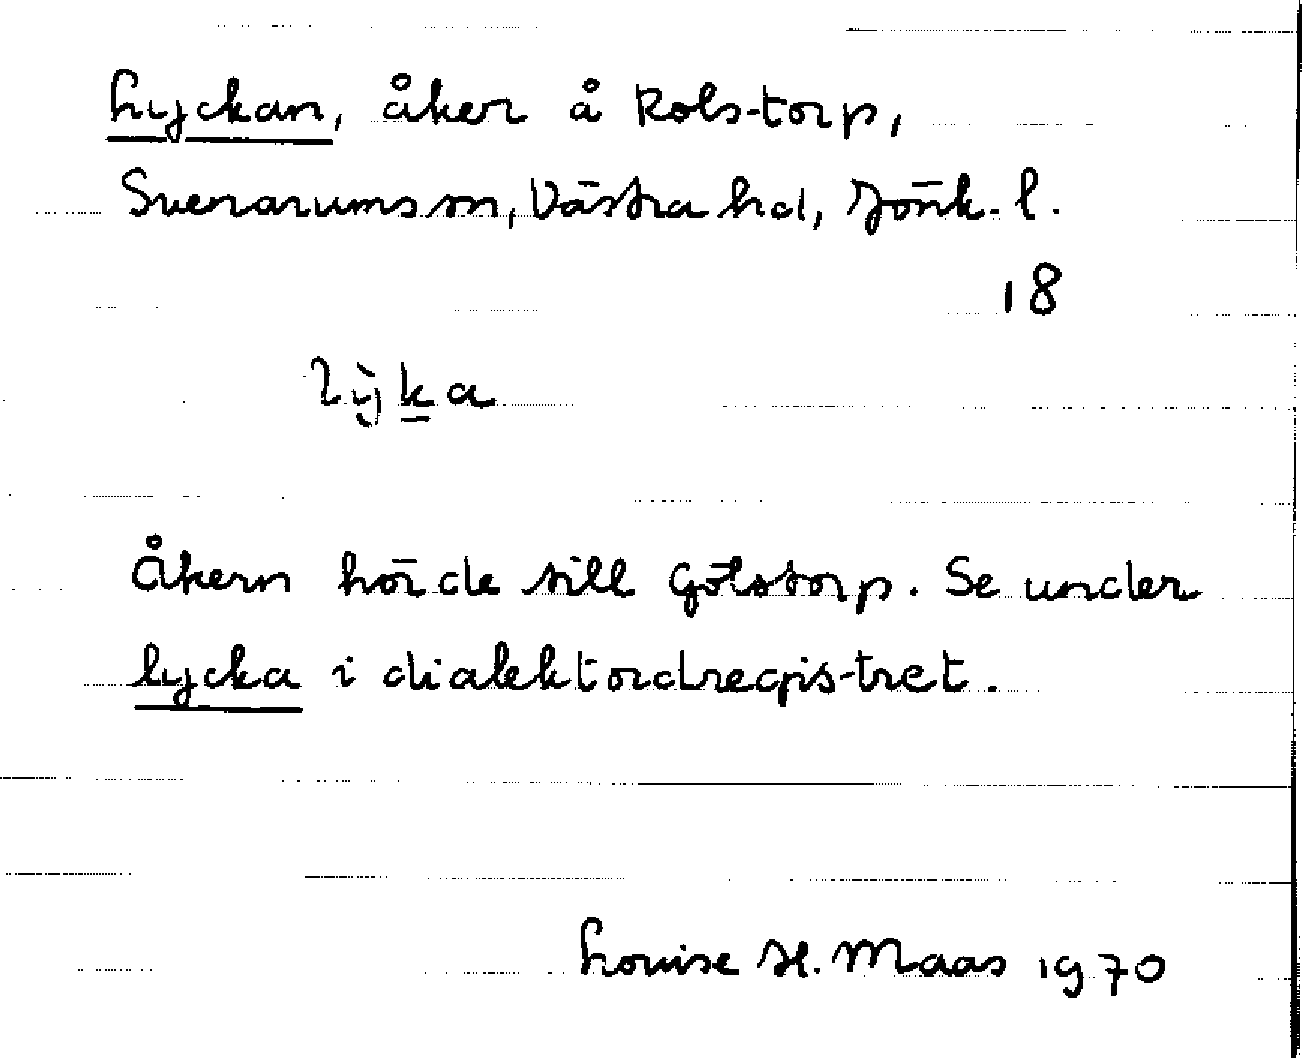 Lyckan, åker å Rolstorp,
Svenarums sn, Västra hd, Jönk. l.
18
lỳka
Åkern hörde till Götstorp. Se under
lycka i dialektordregistret.
Louise H. Maas 1970